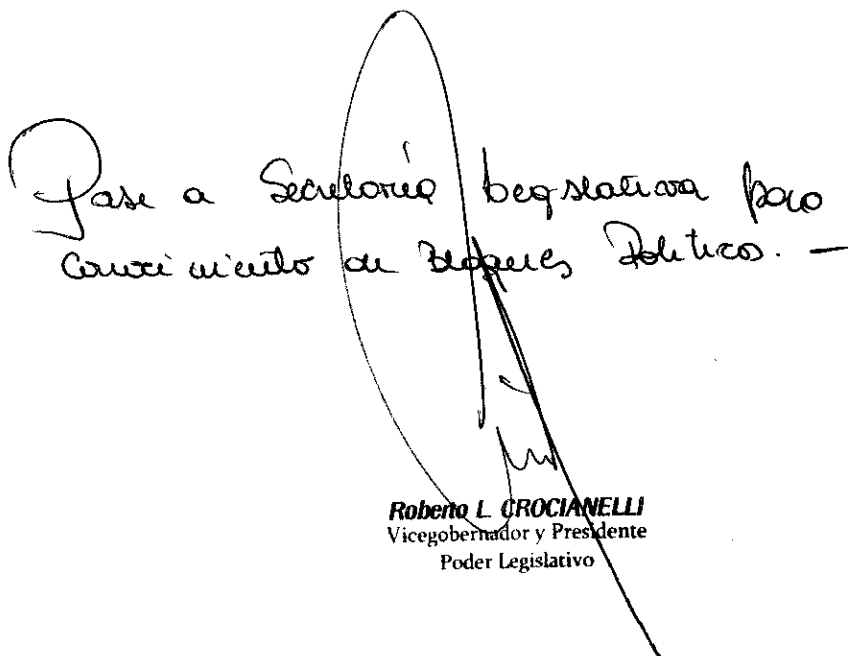 Pase a Secretaría Legislativa para
conocimiento de Bloques Politicos. —
Roberto L. CROCIANELLI
Vicegobernador y Presidente
Poder Legislativo